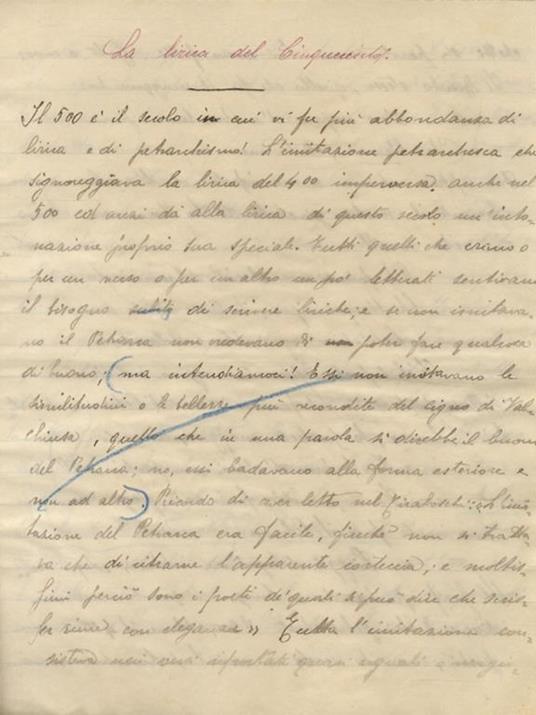 La lirica del Cinquecento.
Il 500 è il secolo in cui vi fu più abbondanza di
lirica e di petrarchismo! L'imitazione petrarchesca che
signoreggiava la lirica del 400 imperversa, anche nel
500 ed anzi dà alla lirica di questo secolo un' into-
nazione proprio sua speciale. Tutti quelli che erano o
per un verso o per un altro un po' letterati sentivano
il bisogno subito di scrivere liriche; e se non imitava-
no il Petrarca non credevano di non poter fare qualcosa
di buono; (ma intendiamoci! Essi non imitavano le
similitudini o le bellezze più recondite del cigno di Val-
chiusa, quello che in una parola si direbbe il buono
del Petrarca; no, essi badavano alla forma esteriore e
non ad altro). Ricordo di aver letto nel Tiraboschi: «L'imi-
tazione del Petrarca era facile, finchè non si tratta-
va che di ritrarne l'apparente corteccia; e moltis-
simi perciò sono i poeti de' quali si può dire che scris-
ser rime con eleganza» Tutta l'imitazione con-
sisteva nei versi riportati quasi uguali